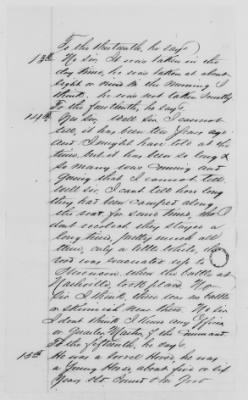 To the thirteenth, he says
13th No Sir, It was taken in the
day time, he was taken at about
eight or nine in the morning I
think. he was not taken secretly
To the fourteenth, he says
14th Yes Sir, Well Sir I cannot
tell, it has been ten years ago
and I might have told at the
time, but it has been so long &
so many was coming and
going that I cannot tell
Well Sir, I cant tell how long
they had been camped along
the road for some time, they
dont stay a
long time, pretty much all
time, only a little while, the
road was evacuated up to
when the battle at
Nashville took place No
Sir I think, there was no battle
or skirmish near there No Sir
I dont think I knew any Officer
or Quarter Master of the Command
To the fifteenth, he says
15th He was a Sorrel Horse, he was
a Young Horse, about five or six
Years old